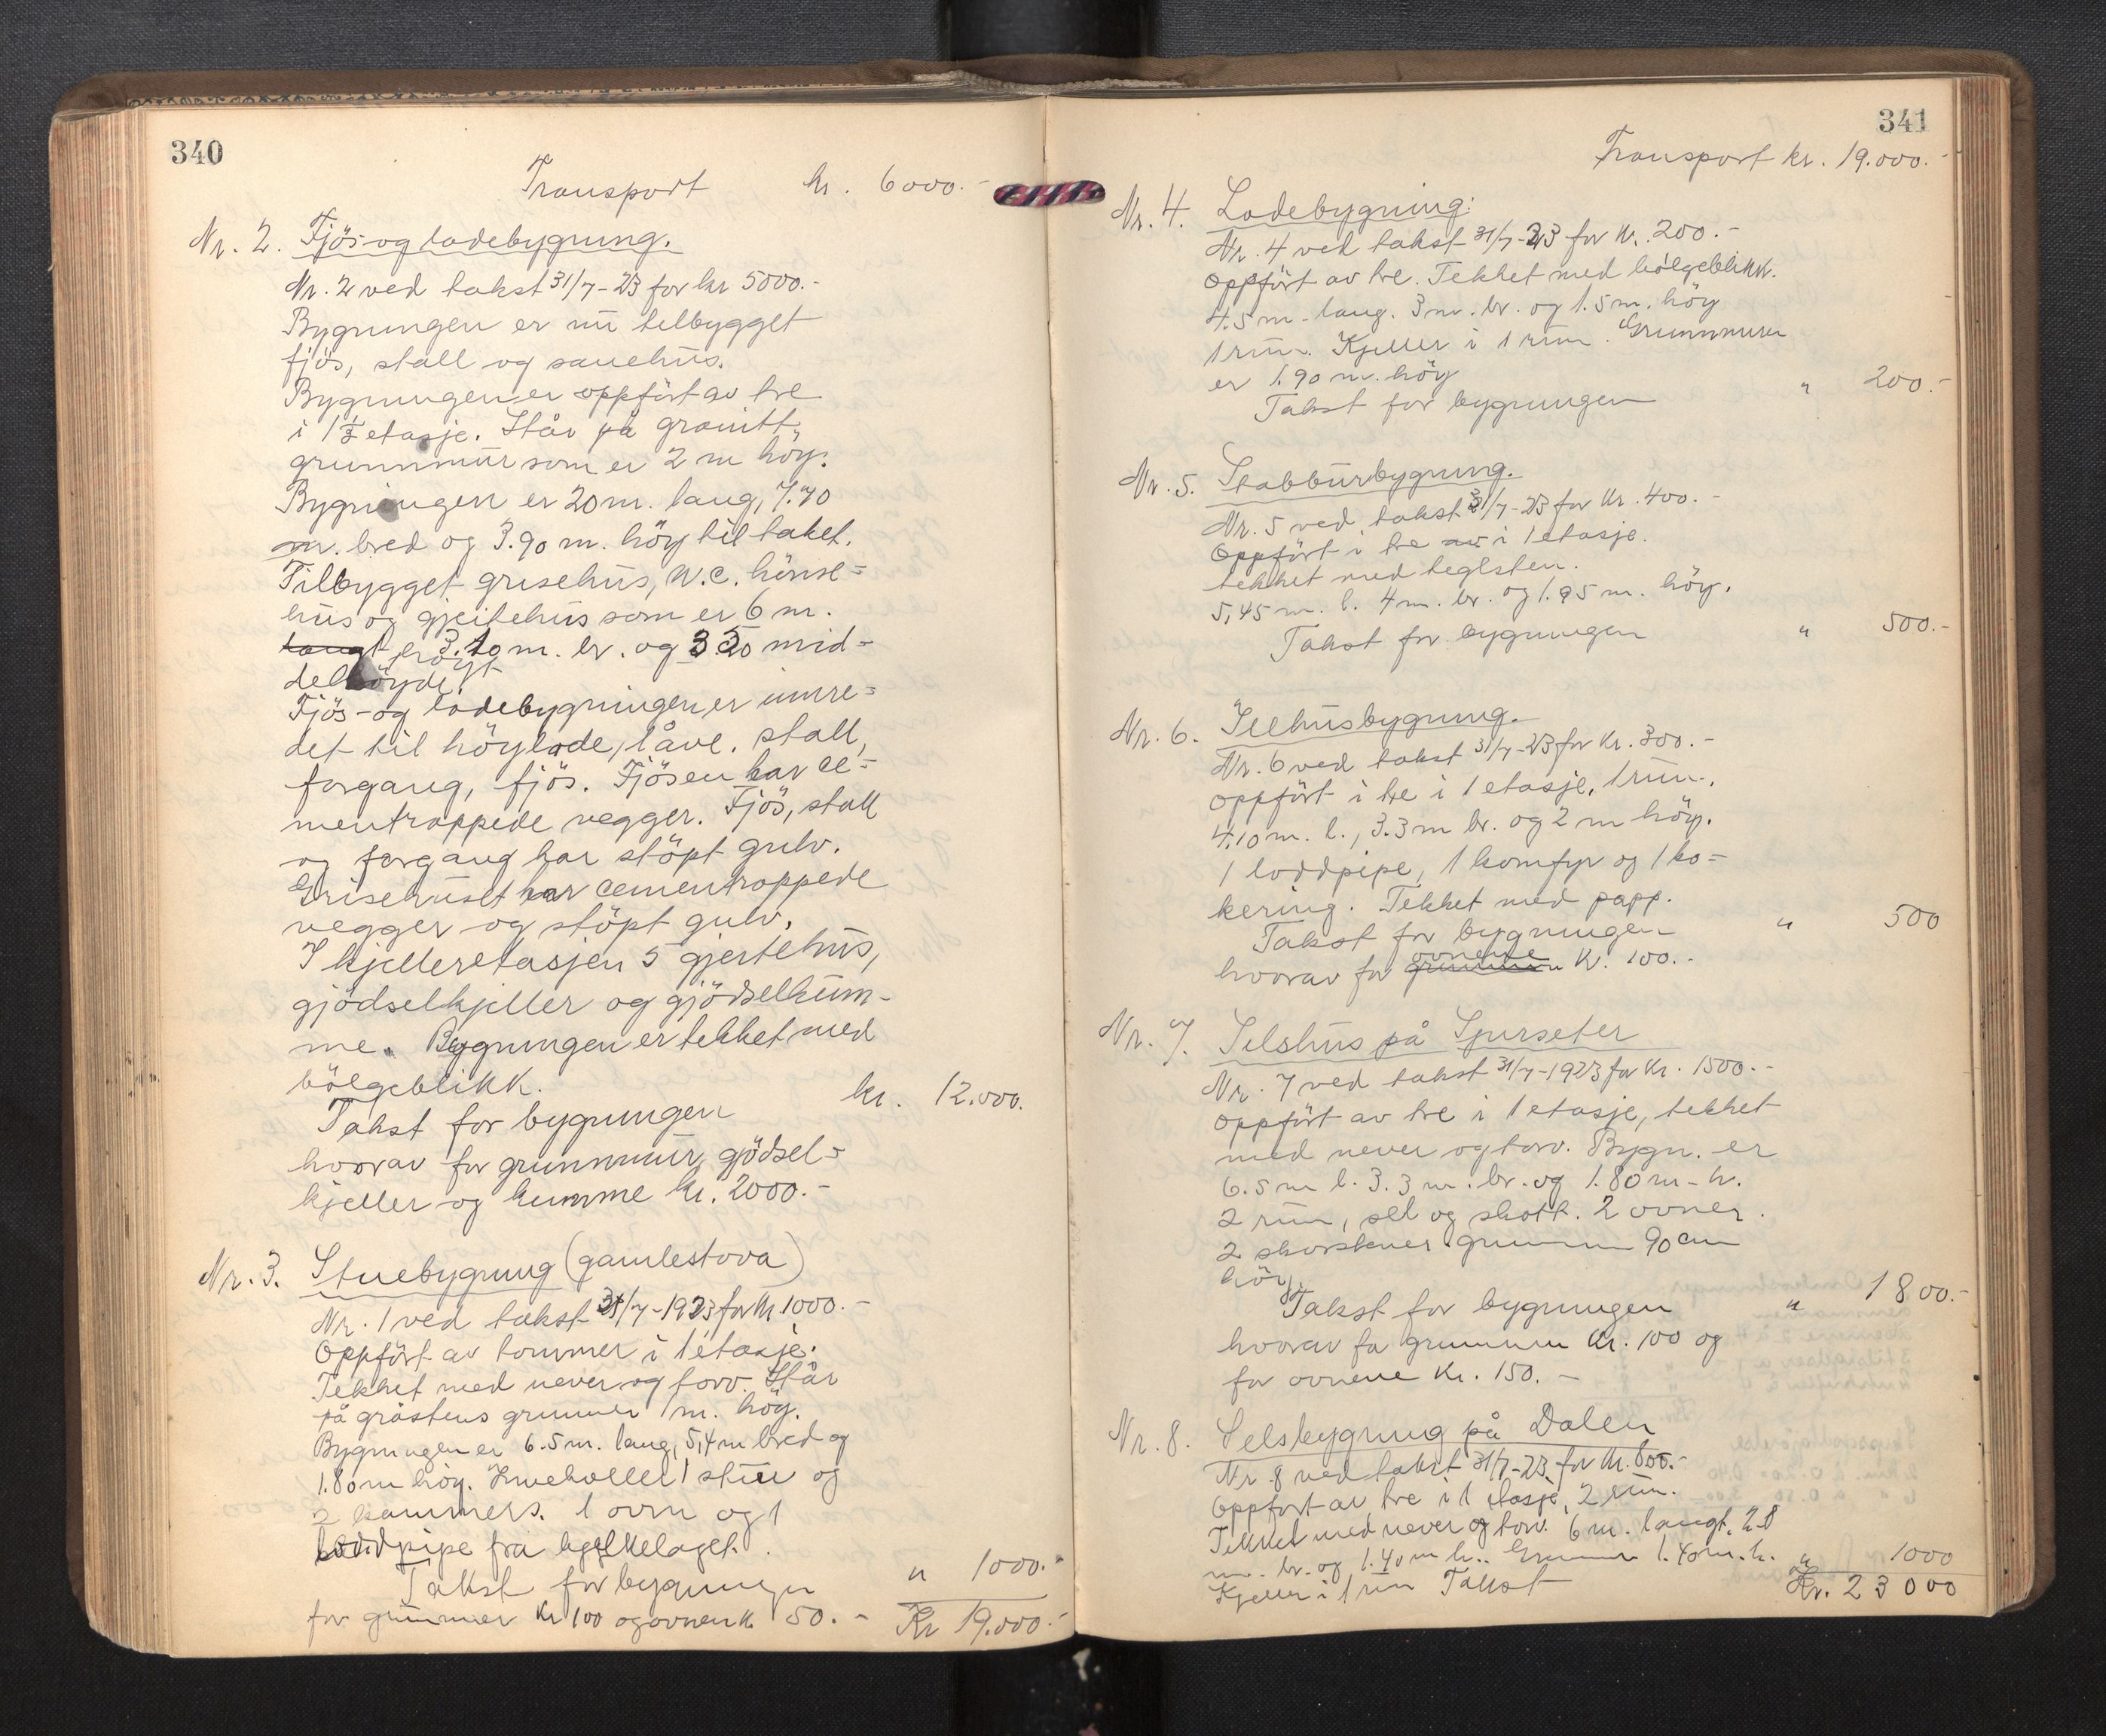 340
Transport kr. 6000.-
Nr. 2. Fjös- og ladebygning.
Nr. 2 ved takst 31/7-23 for kr 5000.-
Bygningen er nu tilbygget
fjös, stall og sauehus.
Bygningen er oppfört av tre
i 1 1/2 etasje. Står på granitt
grunnmur som er 2 m höy.
Bygningen er 20 m. lang, 7.70
m. bred og 3.90 m. höy til taket.
Tilbygget grisehus, W.C. hönse=
hus og gjeitehus som er 6 m.
langt, 3.10 m. br. og 3.20 mid=
delhöyde.
Fjös- og ladebygningen er innre=
det til höylade, låve, stall,
forgang, fjös. Fjösen har ce=
mentrappede vegger. Fjös, stall
og forgang har stöpt gulv.
Grisehuset har cementrappede
vegger og stöpt gulv.
I kjelleretasjen gjeitehus,
gjödselkjeller og gjödselkum-
me. Bygningen er tekket med
bölgeblikk.
Takst for bygningen kr. 12.000.
hvorav for grunnmur, gjödsel=
kjeller og kumme kr. 2000.-
Nr. 3. Stuebygning (gamlestova)
Nr. 1 ved takst 31/7-1923 for kr 1000.-
Oppfört av tömmer i 1 etasje.
Tekket med never og torv. Står
på gråstens grunnmur 1 m. höy.
Bygningen er 6.5 m. lang, 5,4 m bred og
1.80 m höy. Inneholder 1 stue og
2 kammers. 1 ovn og 1
loddpipe fra bjelkelaget.
Takst for bygningen " 1000.-
for grunnmur kr 100 og ovnen k. 50.- Kr 19.000.-
341
Transport kr. 19.000.-
Nr. 4. Ladebygning:
Nr. 4 ved takst 31/7-23 for kr. 200.-
Oppfört av tre. Tekket med bölgeblikk.
4.5 m. lang. 3 m. br. og 1.5 m. höy
1 rum. Kjeller i 1 rum. Grunnmuren
er 1.90 m. höy
Takst for bygningen " 200.-
Nr. 5. Stabburbygning.
Nr. 5 ved takst 31/7-23 for kr. 400.-
Oppfört i tre av i 1 etasje.
tekket med teglsten.
5,45 m. l. 4 m. br. og 1.95 m. höy.
Takst for bygningen " 500.-
Nr. 6. Ildhusbygning.
Nr. 6 ved takst 31/7-23 for kr. 300.-
Oppfört i tre i 1 etasje, 1 rum.
4.10 m. l., 3.3 m br. og 2 m höy.
1 loddpipe, 1 komfyr og 1 ko=
kering. Tekket med papp.
Takst for bygningen " 500
hvorav for ovnene kr. 100.-
Nr. 7. Selshus på Spurseter
Nr. 7 ved takst 31/7-1923 for kr. 1500.-
Oppfört av tre i 1 etasje, tekket
med never og torv. Bygn. er
6.5 m l. 3.3 m. br. og 1.80 m. h.
2 rum, sel og skott. 2 ovner.
2 skorstener. grunnmur 90 cm
höy.
Takst for bygningen " 1800.-
hvorav for grunnmur kr. 100 og
for ovnene kr. 150.-
Nr. 8. Selsbygning på Dalen
Nr. 8 ved takst 31/7-23 for kr. 800.-
Oppfört av tre i 1 etasje, 2 rum.
Tekket med never og torv. 6 m. langt, 2.8
m. br. og 1.40 m h. Grunnmur 1.40 m. h.
Kjeller i 1 rum Takst " 1000
Kr. 23000